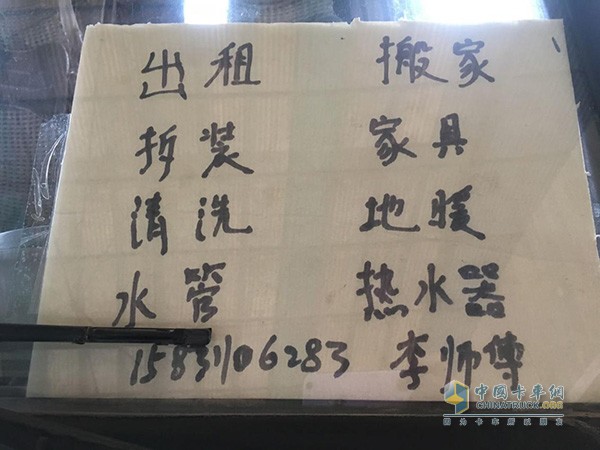 出租 搬家
拆装 家具
清洗 地暖
水管 热水器
15831106283 李师傅
中国卡车网
CHINATRUCK.ORG
因为卡车所以朋友